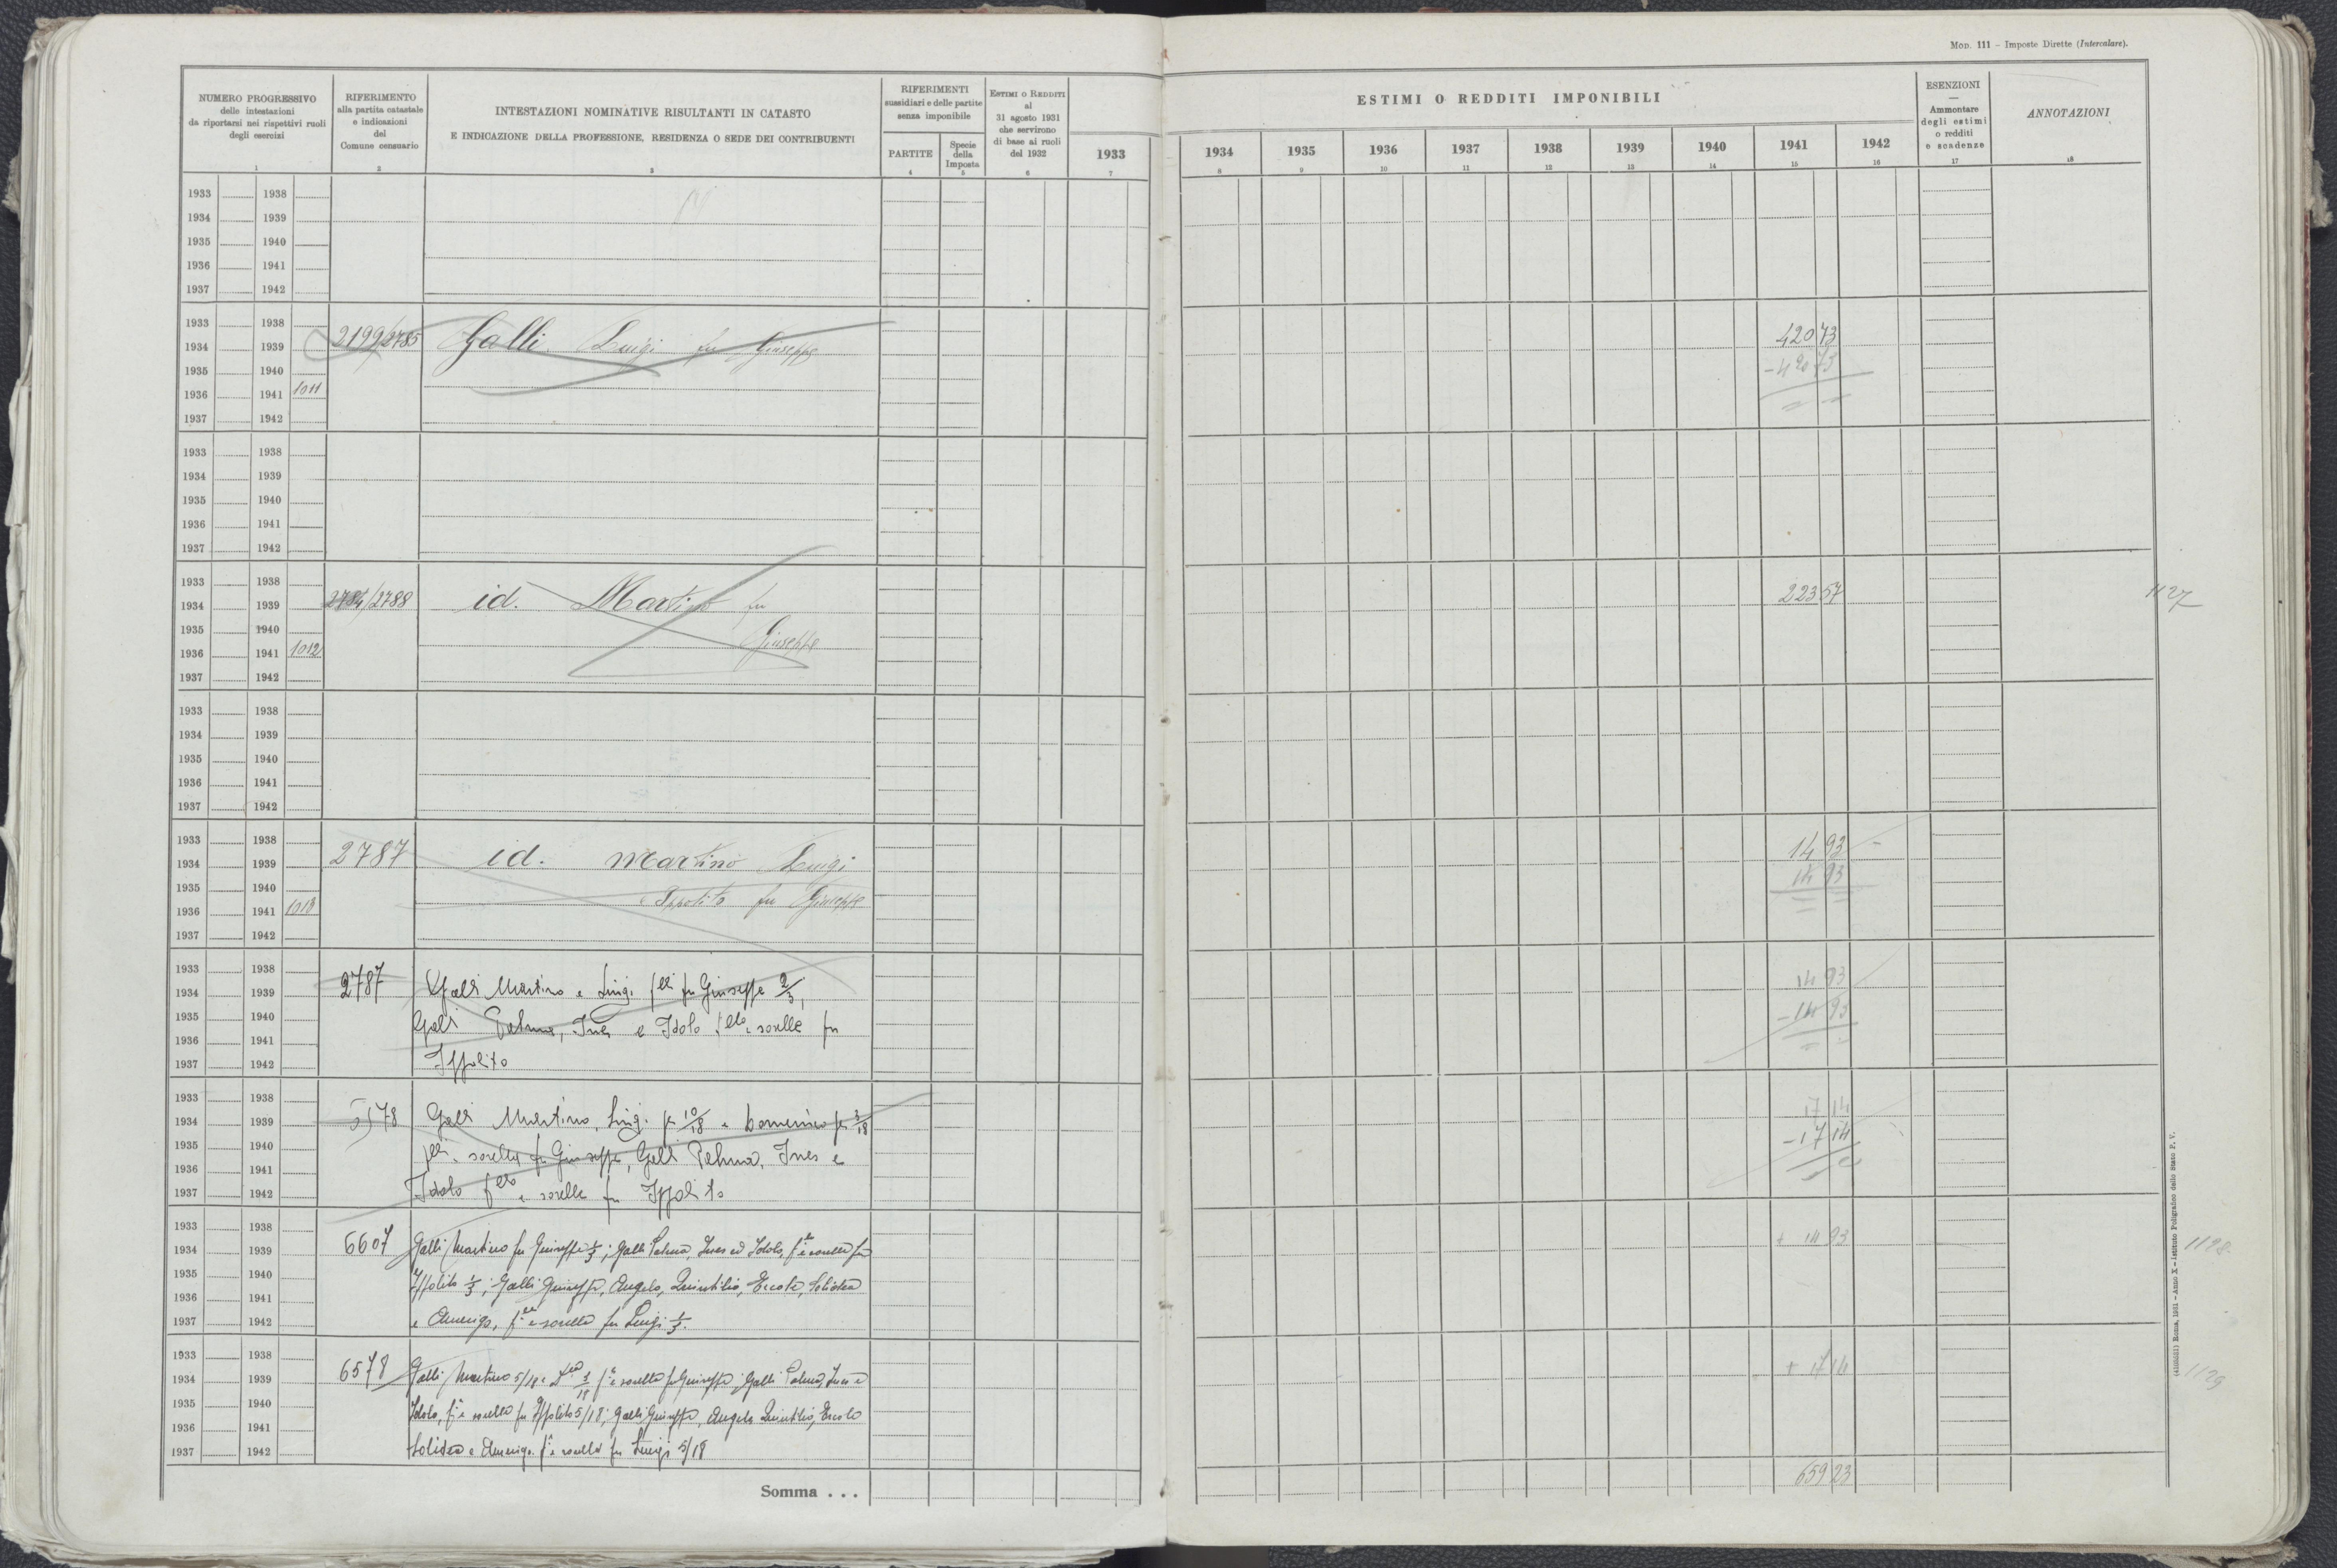 MOD. 111 – Imposte Dirette (Intercalare).
NUMERO PROGRESSIVO
delle intestazioni
da riportarsi nei rispettivi ruoli
degli esercizi
1
RIFERIMENTO
alla partita catastale
e indicazioni
del
Comune censuario
2
INTESTAZIONI NOMINATIVE RISULTANTI IN CATASTO
E INDICAZIONE DELLA PROFESSIONE, RESIDENZA O SEDE DEI CONTRIBUENTI
3
RIFERIMENTI
sussidiari e delle partite
senza imponibile
PARTITE
4
Specie
della
Imposta
5
ESTIMI O REDDITI
al
31 agosto 1931
che servirono
di base ai ruoli
del 1932
6
ESTIMI O REDDITI IMPONIBILI
1933 1934 1935 1936 1937 1938 1939 1940 1941 1942
7 8 9 10 11 12 13 14 15 16
ESENZIONI
—
Ammontare
degli estimi
o redditi
e scadenze
17
ANNOTAZIONI
18
1933 1938
1934 1939
1935 1940
1936 1941
1937 1942
1933 1938
1934 1939 2199/2785 Galli Luigi fu Giuseppe 420 73
1935 1940 - 420 73
1936 1941 1011
1937 1942
1933 1938
1934 1939
1935 1940
1936 1941
1937 1942
1933 1938
1934 1939 2784/2788 id. Martino fu 223 57 1127
1935 1940
1936 1941 1012 Giuseppe
1937 1942
1933 1938
1934 1939
1935 1940
1936 1941
1937 1942
1933 1938
1934 1939 2787 id. Martino Luigi 14 93
1935 1940 14 93
1936 1941 1013 e Ippolito fu Giuseppe
1937 1942
1933 1938
1934 1939 2787 Galli Martino e Luigi f.lli fu Giuseppe 2/3, 14 93
1935 1940 Galli Palma, Ines e Idolo f.llo e sorelle fu - 14 93
1936 1941
1937 1942 Ippolito
1933 1938
1934 1939 5578 Galli Martino, Luigi per 10/18 e Domenica per 3/18 17 14
1935 1940 f.lli e sorella fu Giuseppe, Galli Palma, Ines e - 17 14
1936 1941
1937 1942 Idolo f.llo e sorelle fu Ippolito
1933 1938
1934 1939 6607 Galli Martino fu Giuseppe 1/3; Galli Palma, Ines ed Idolo, f.llo e sorelle fu + 14 93 1128
1935 1940 Ippolito 1/3; Galli Giuseppe, Angelo, Quintilio, Ercole, Solidea
1936 1941
1937 1942 e Amerigo, f.lli e sorella fu Luigi 1/3.
1933 1938
1934 1939 6578 Galli Martino 5/18 e 3/18 f.i e sorella fu Giuseppe Galli Palma, Ines e + 17 14 1129
1935 1940 Idolo, f. e sorelle fu Ippolito 5/18; Galli Giuseppe, Angelo Quintilio, Ercole
1936 1941
1937 1942 Solidea e Amerigo f.i e sorella fu Luigi 5/18
Somma . . . 659 23
Roma, 1931 – Anno X – Istituto Poligrafico dello Stato P. V.